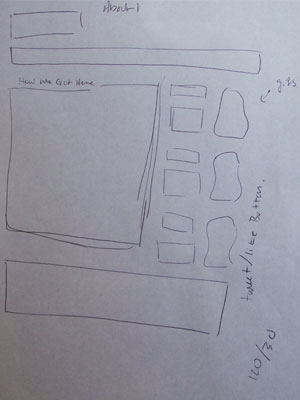 About
How We Got Here
gifs
tweet/like Button.